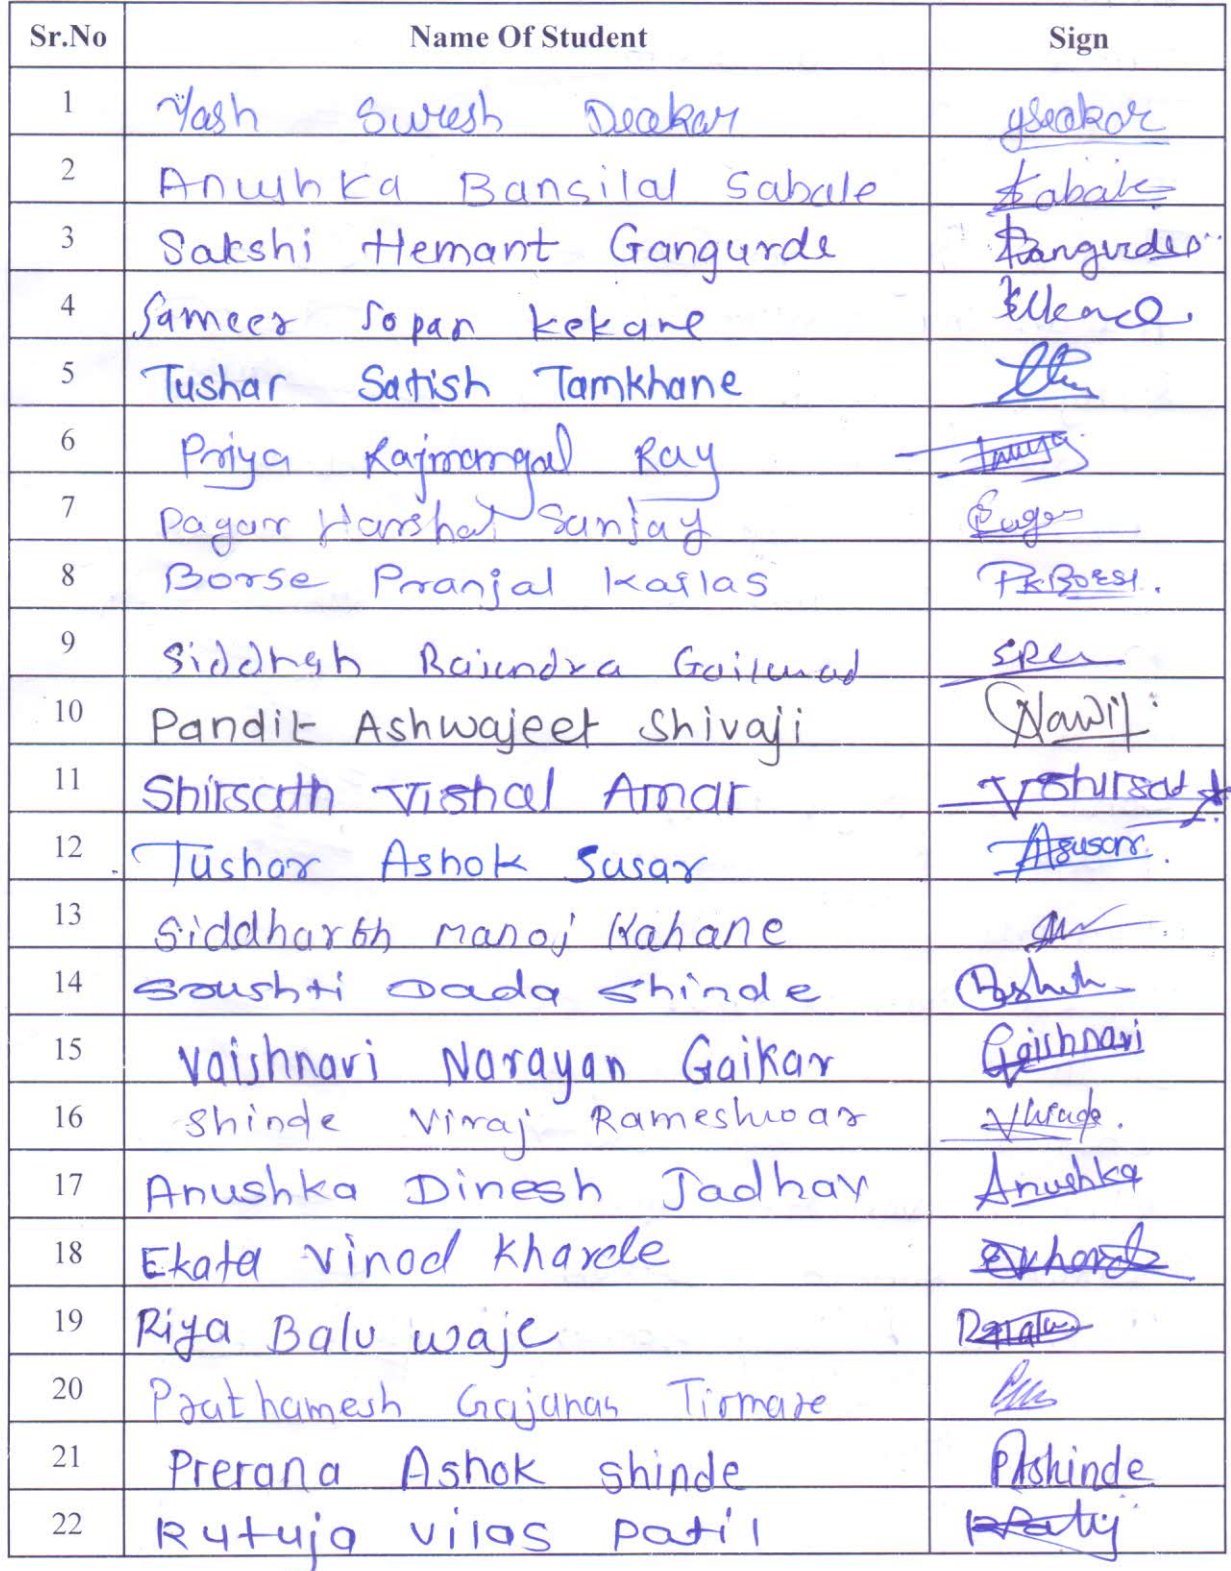 Sr.No Name Of Student Sign
1 Yash Suresh Deokar
2 Anushka Bansilal Sabale Sabale
3 Sakshi Hemant Gangurde Gangurde
4 Sameer Sopan Kekane
5 Tushar Satish Tamkhane
6 Priya Rajmangal Ray
7 Pagar Harshal Sanjay
8 Borse Pranjal Kailas PKBorse.
9 Siddhesh Rajendra Gaikwad
10 Pandit Ashwajeet Shivaji
11 Shirsath Vishal Amar Vshirsath
12 Tushar Ashok Susar Asusar.
13 Siddharth Manoj Kahane
14 Srushti Dada Shinde
15 Vaishnavi Narayan Gaikar Gaishnavi
16 Shinde Viraj Rameshwar
17 Anushka Dinesh Jadhav Anushka
18 Ekata Vinod Kharde
19 Riya Balu waje
20 Prathamesh Gajanan Tirmare
21 Prerana Ashok shinde PAshinde
22 Rutuja vilas patil